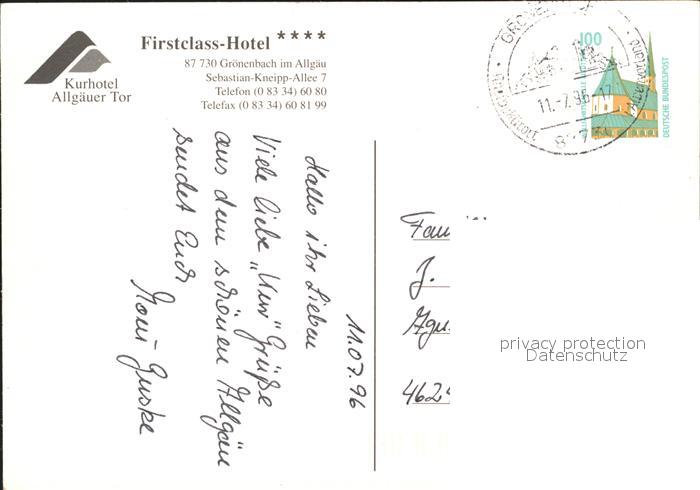 Firstclass-Hotel ****
87 730 Grönenbach im Allgäu
Sebastian-Kneipp-Allee 7
Telefon (0 83 34) 60 80
Telefax (0 83 34) 60 81 99
Kurhotel
Allgäuer Tor
100
DEUTSCHE BUNDESPOST
11.-7.96-17
11.07.96
Hallo ihr Lieben
Viele liebe „Kur" Grüße
aus dem schönen Allgäu
sendet Euch
Fam
J.
462
privacy protection
Datenschutz